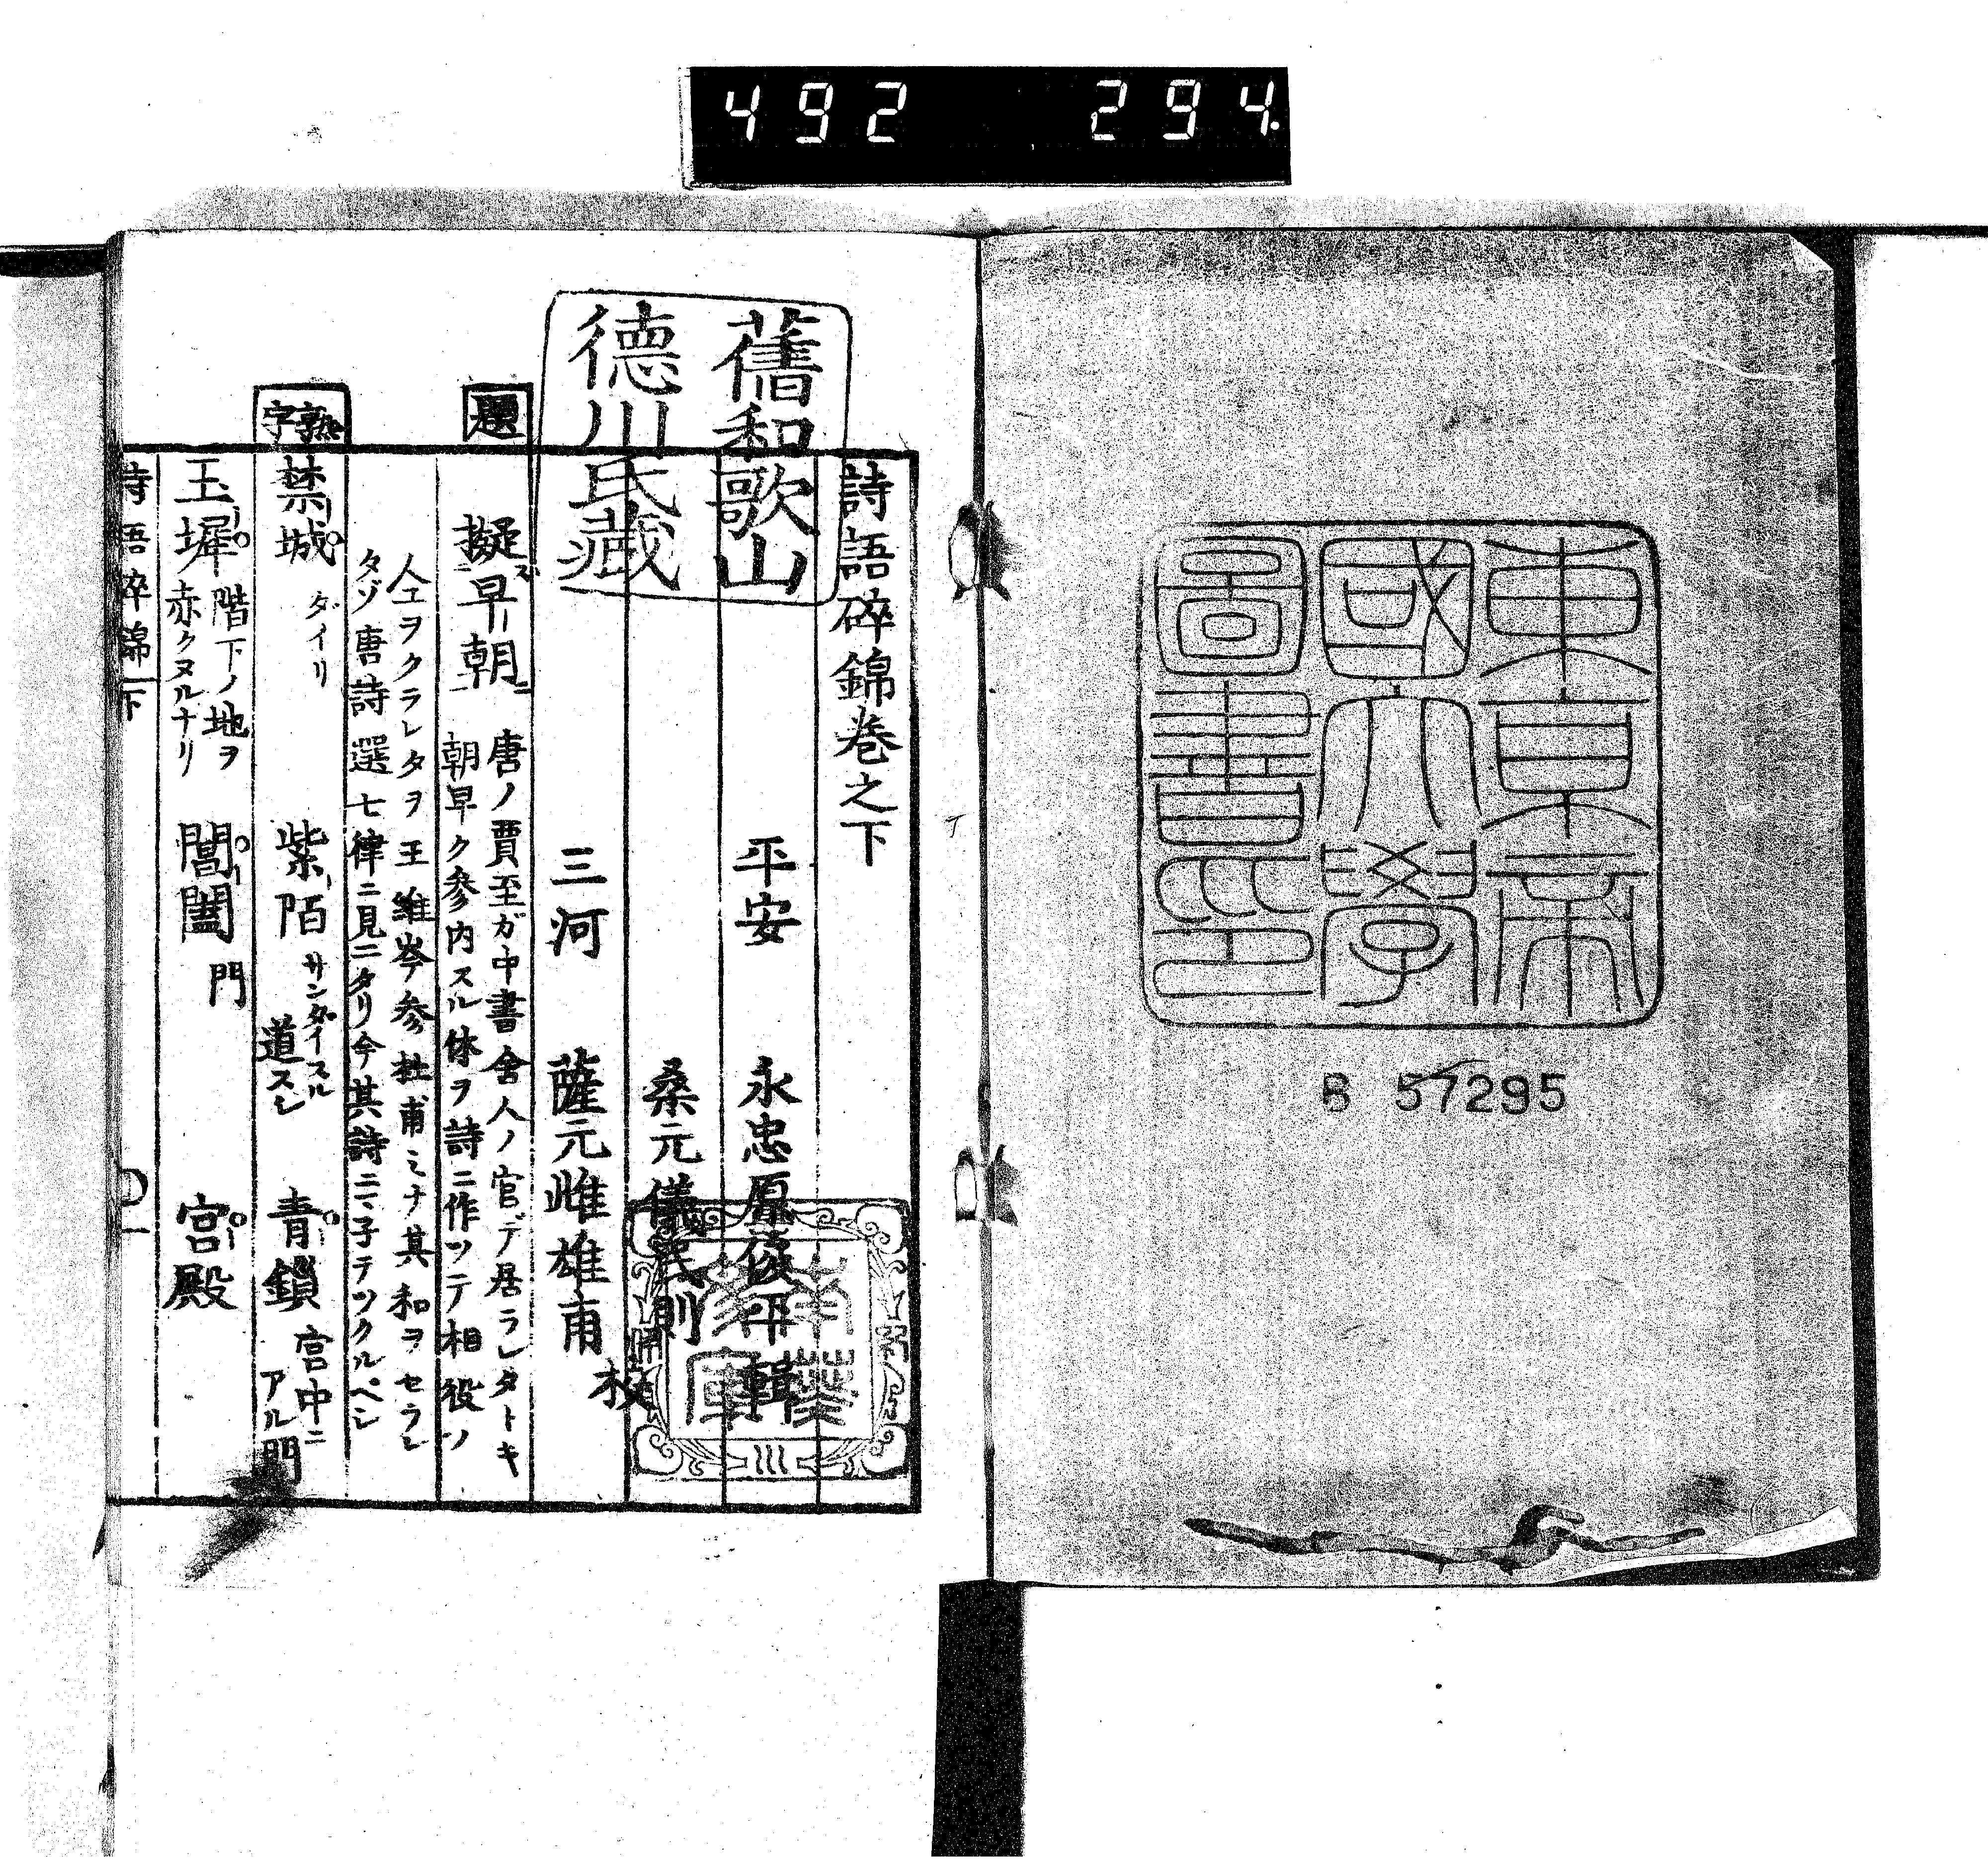 492 294
東京帝
國大學
圖書印
B 57295
舊和歌山
德川氏藏
詩語碎錦卷之下
平安 永忠原俊平輯
桑元儀民則
三河 薩元雌雄甫
校
題
擬早朝
唐ノ賈至ガ中書舍人ノ官デ居ラレタトキ
朝早ク參内スル体ヲ詩ニ作ツテ相役ノ
人エヲクラレタヲ王維岑參杜甫ミナ其和ヲセラレ
タゾ唐詩選七律ニ見ニタリ今其詩ニ子テツクルベシ
熟字
禁城 ダイリ
紫陌 サンダイスル道スレ
青鎖 宮中ニアル門
玉墀 階下ノ地ヲ赤クヌルナリ
閶闔 門
宮殿
詩語碎錦下
一
南葵
文庫